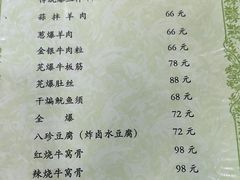 蒜拌羊肉 66元
葱爆羊肉 66元
金银牛肉粒 66元
芫爆牛板筋 78元
芫爆肚丝 88元
干煸鱿鱼须 68元
全爆 72元
八珍豆腐（炸卤水豆腐） 72元
红烧牛窝骨 98元
辣烧牛窝骨 98元